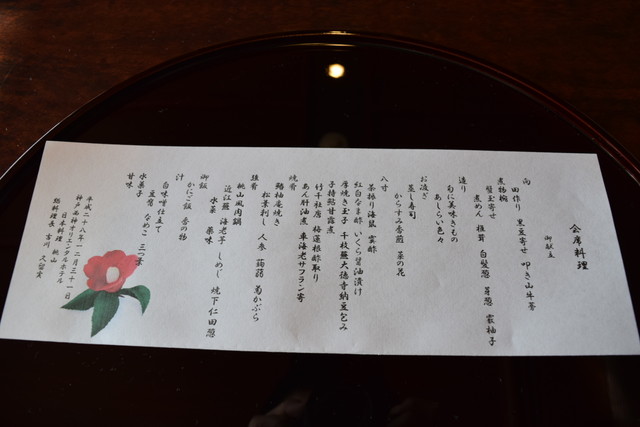 会席料理
御献立
向
田作り 黒豆寄せ 叩き山牛蒡
煮物椀
蟹玉寄せ 煮めん 椎茸 白髪葱 芽葱 霰柚子
造り
旬に美味きもの
あしらい色々
お凌ぎ
蒸し寿司 からすみ香煎 菜の花
八寸
茶振り海鼠 霙酢
紅白なま酢 いくら醤油漬け
厚焼き玉子 千枚蕪大徳寺納豆包み
子持鮎甘露煮
竹千社唐 梅蓮根酢取り
あん肝油煮 車海老サフラン寄
焼肴
鰆柚庵焼き
松葉刺し 人参 蒟蒻 菊かぶら
強肴
桃山風肉鍋
近江蕪 海老芋 しめじ 焼下仁田葱
水菜 薬味
御飯
かにご飯 香の物
汁
白味噌仕立て
豆腐 なめこ 三つ葉
甘味
水菓子
平成二十八年十二月三十一日
神戸西神オリエンタルホテル
日本料理 桃山
総料理長 吉川 久留實